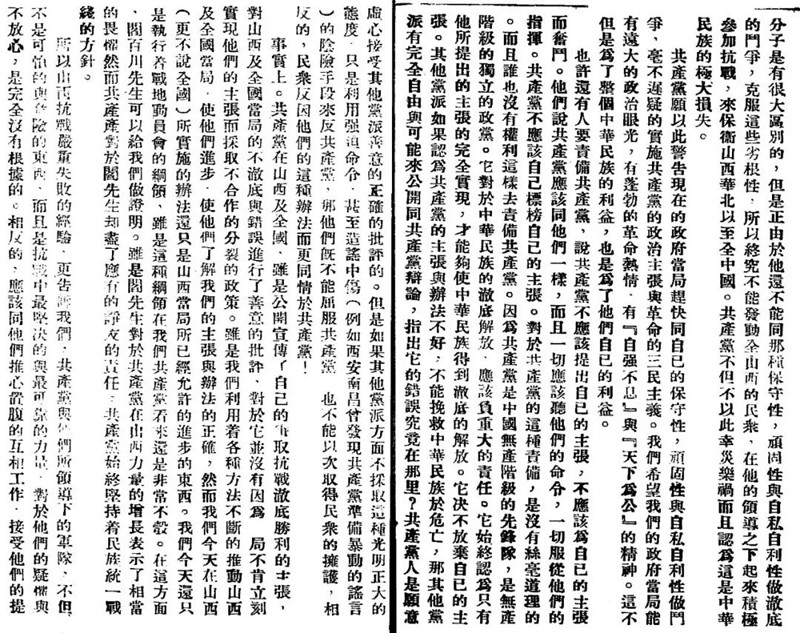 分子是有很大區別的，但是正由於他還不能同那種保守性，頑固性與自私自利性做澈底
的鬥爭，克服這些劣根性，所以終究不能發動全山西的民衆，在他的領導之下起來積極
參加抗戰，來保衞山西華北以至全中國。共產黨不但不以此幸災樂禍而且認爲這是中華
民族的極大損失。
共產黨願以此警告現在的政府當局趕快同自己的保守性，頑固性與自私自利性做鬥
爭，毫不遲疑的實施共產黨的政治主張與革命的三民主義。我們希望我們的政府當局能
有遠大的政治眼光，有蓬勃的革命熱情，有『自强不息』與『天下爲公』的精神。這不
但是爲了整個中華民族的利益，也是爲了他們自己的利益。
也許還有人要責備共產黨，說共產黨不應該提出自己的主張，不應該爲自己的主張
而奮鬥。他們說共產黨應該同他們一樣，而且一切應該聽他們的命令，一切服從他們的
指揮。共產黨不應該自己標榜自己的主張。對於共產黨的這種責備，是沒有絲毫道理的
。而且誰也沒有權利這樣去責備共產黨。因爲共產黨是中國無產階級的先鋒隊，是無產
階級的獨立的政黨。它對於中華民族的澈底解放，應該負重大的責任。它始終認爲只有
他所提出的主張的完全實現，才能夠使中華民族得到澈底的解放。它决不放棄自己的主
張。其他黨派如果認爲共產黨的主張與辦法不好，不能挽救中華民族於危亡，那其他黨
派有完全自由與可能來公開同共產黨辯論，指出它的錯誤究竟在那里？共產黨人是願意
虛心接受其他黨派善意的正確的批評的。但是如果其他黨派方面不採取這種光明正大的
態度，只是利用强迫命令，甚至造謠中傷（例如西安南昌曾發現共產黨準備暴動的謠言
）的陰險手段來反共產黨，那他們旣不能屈服共產黨，也不能以次取得民衆的擁護，相
反的，民衆反因他們的這種辦法而更同情於共產黨！
事實上。共產黨在山西及全國，雖是公開宣傳了自己的爭取抗戰澈底勝利的主張，
對山西及全國當局的不澈底與錯誤進行了善意的批評，對於它並沒有因爲 局不肯立刻
實現他們的主張而採取不合作的分裂的政策。雖是我們利用着各種方法不斷的推動山西
及全國當局，使他們進步，使他們了解我們的主張與辦法的正確，然而我們今天在山西
（更不說全國）所實施的辦法還只是山西當局所已經允許的進步的東西。我們今天還只
是執行着戰地動員會的綱領，雖是這種綱領在我們共產黨看來還是非常不彀。在這方面
，閻百川先生可以給我們做證明。雖是閻先生對於共產黨在山西力量的增長表示了相當
的畏懼然而共產黨對於閻先生却盡了應有的諍友的責任，共產黨始終堅持着民族統一戰
綫的方針。
所以山西抗戰嚴重失敗的經驗，更告訴我們，共產黨與他們所領導下的軍隊，不但
不是可怕的與危險的東西，而且是抗戰中最堅决的與最可靠的力量，對於他們的疑懼與
不放心，是完全沒有根據的。相反的，應該同他們推心置腹的互相工作，接受他們的提